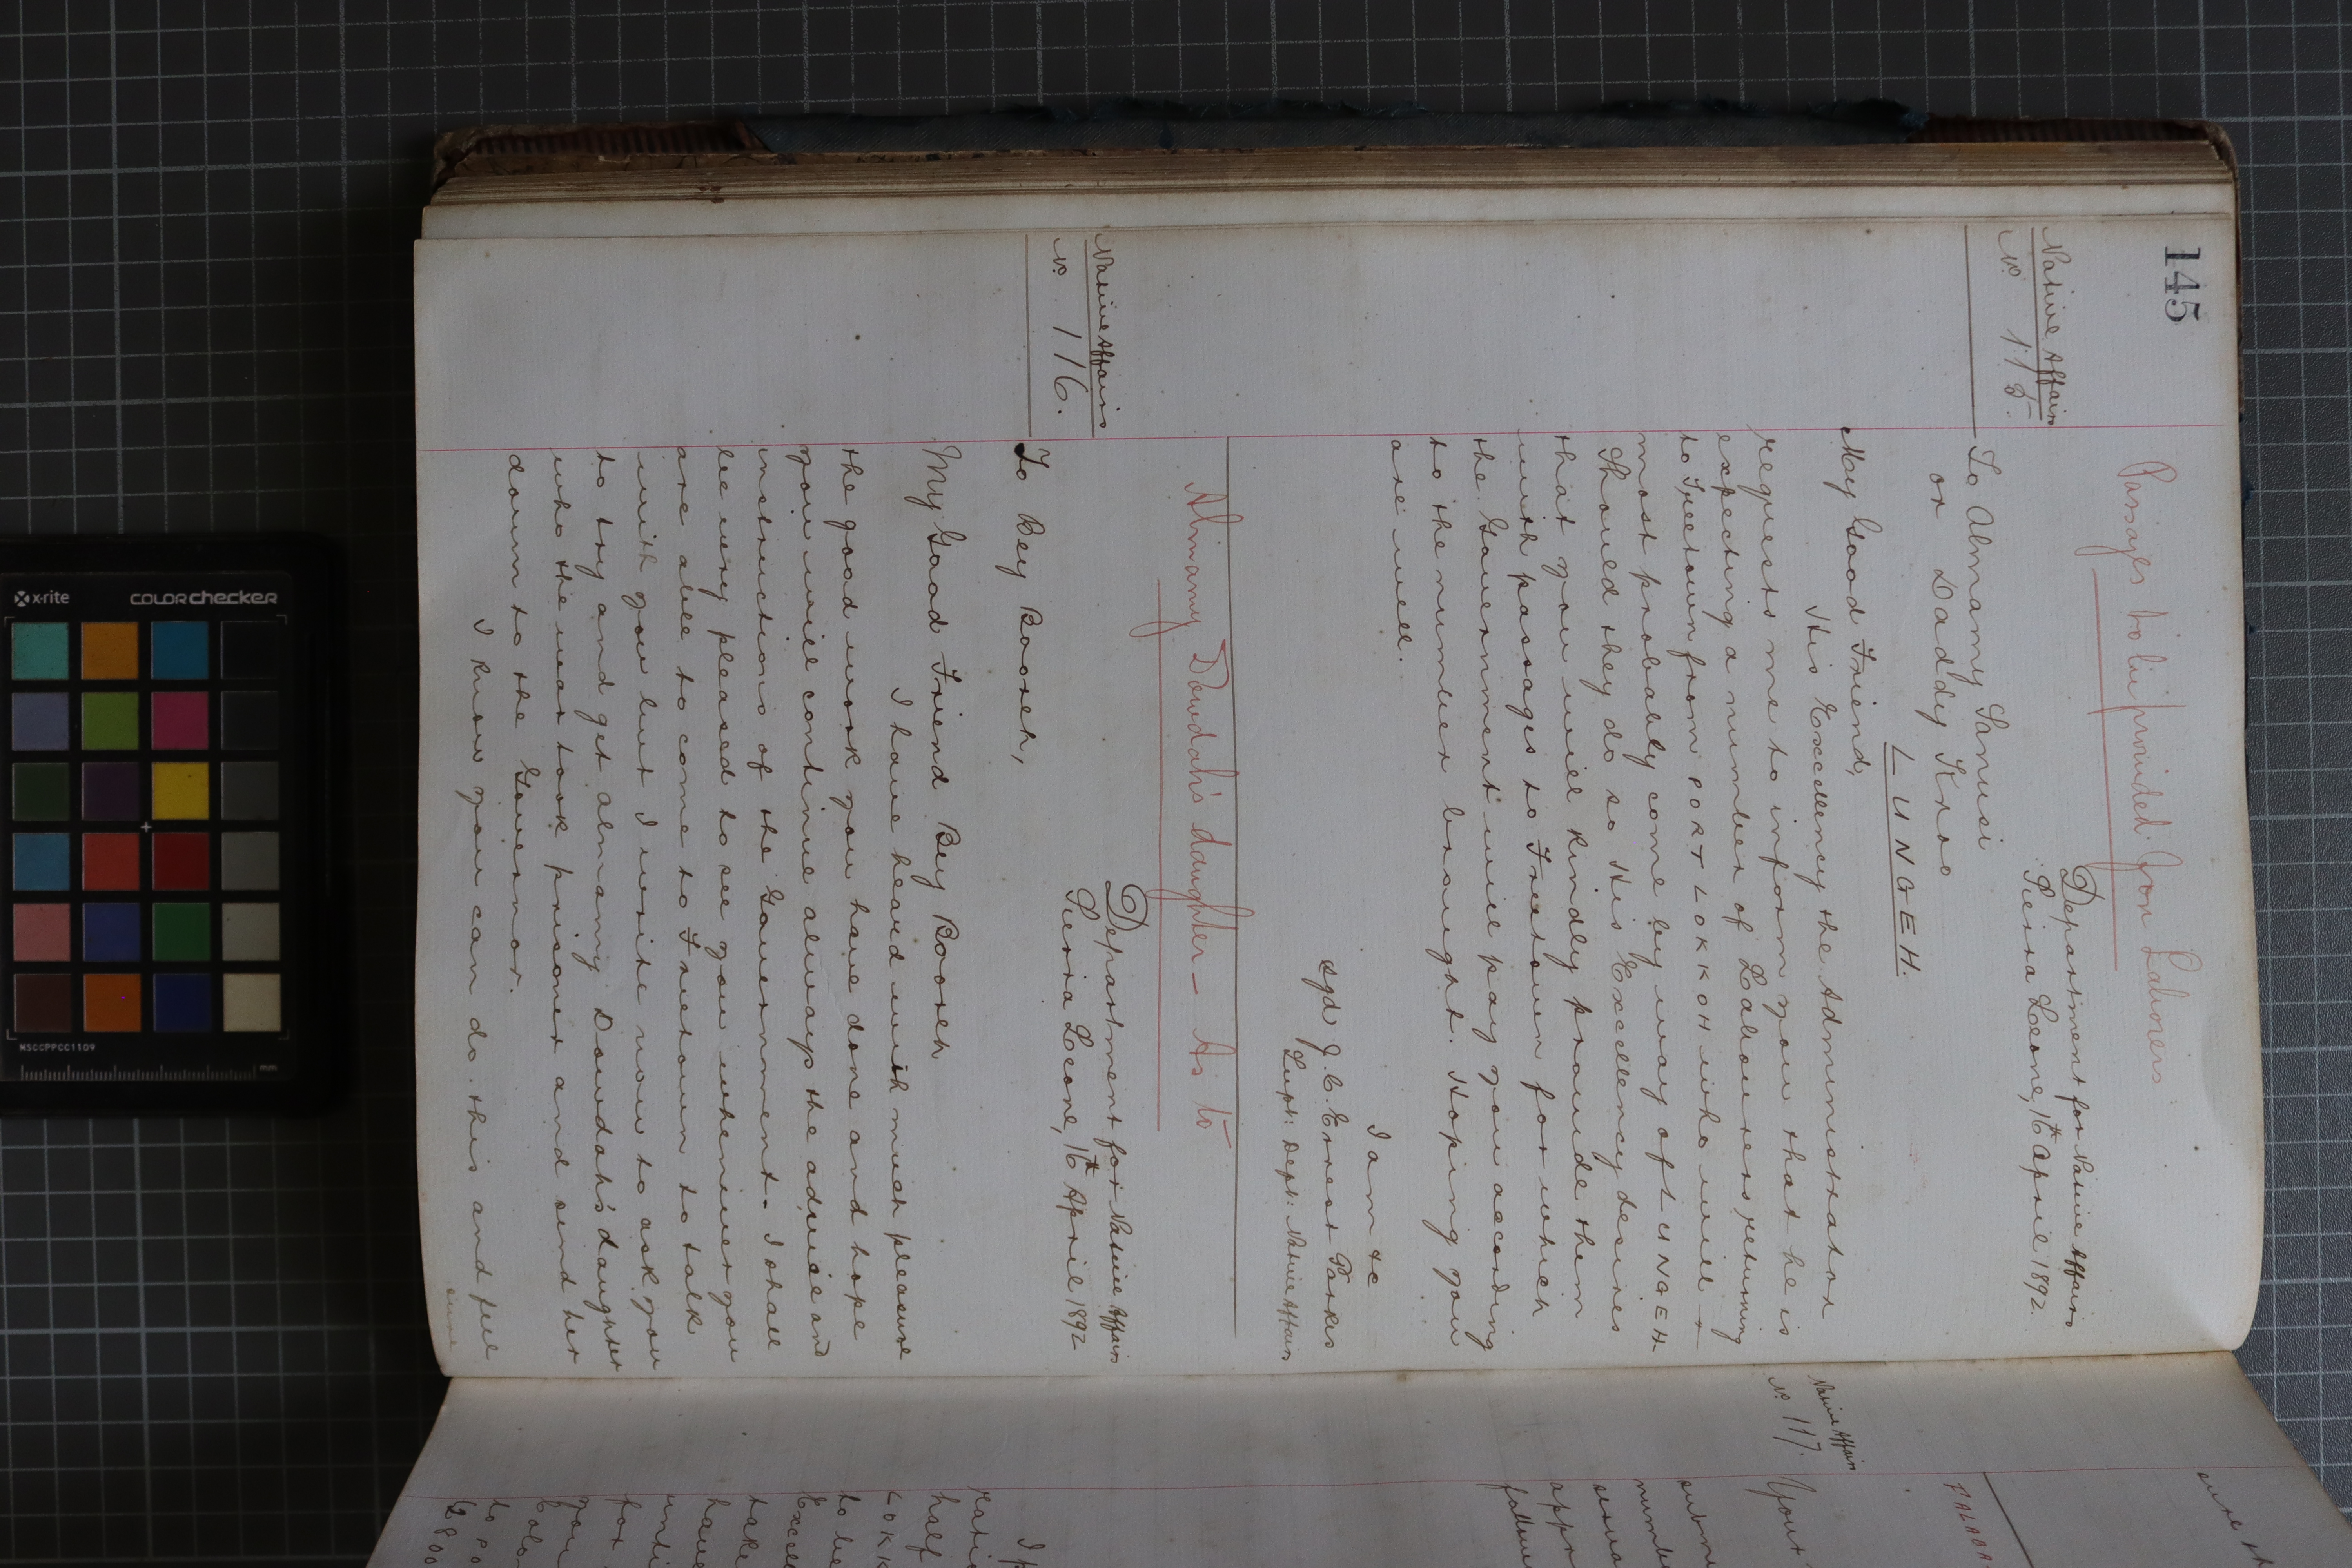 145
Passages to be provided for Labourers
Native Affairs
No. 115.
Department for Native Affairs
Sierra Leone, 16th April 1892.
To Almamy Sanusi
or Daddy Kroo
LUNGEH.
My Good Friend,
His Excellency the Administrator
requests me to inform you that he is
expecting a number of Labourers returning
to Freetown from PORT LOKKOH who will
most probably come by way of LUNGEH.
Should they do so His Excellency desires
that you will kindly provide them
with passages to Freetown for which
the Government will pay you according
to the number brought. Hoping you
are well.
I am &c
Sgd J. C. Ernest Parkes
Supt: Dept: Native Affairs
Almamy Dowdah's daughter – As to
Native Affairs
No. 116.
Department for Native Affairs
Sierra Leone, 16th April 1892
To Bey Booreh,
My Good Friend Bey Booreh
I have heard with much pleasure
the good work you have done and hope
you will continue always the advice and
instructions of the Government. I shall
be very pleased to see you whenever you
are able to come to Freetown to talk
with you but I write now to ask you
to try and get Almamy Dowdah's daughter
who the war took prisoner and send her
down to the Governor.
I know you can do this and feel
sure
Native Affairs
No. 117.